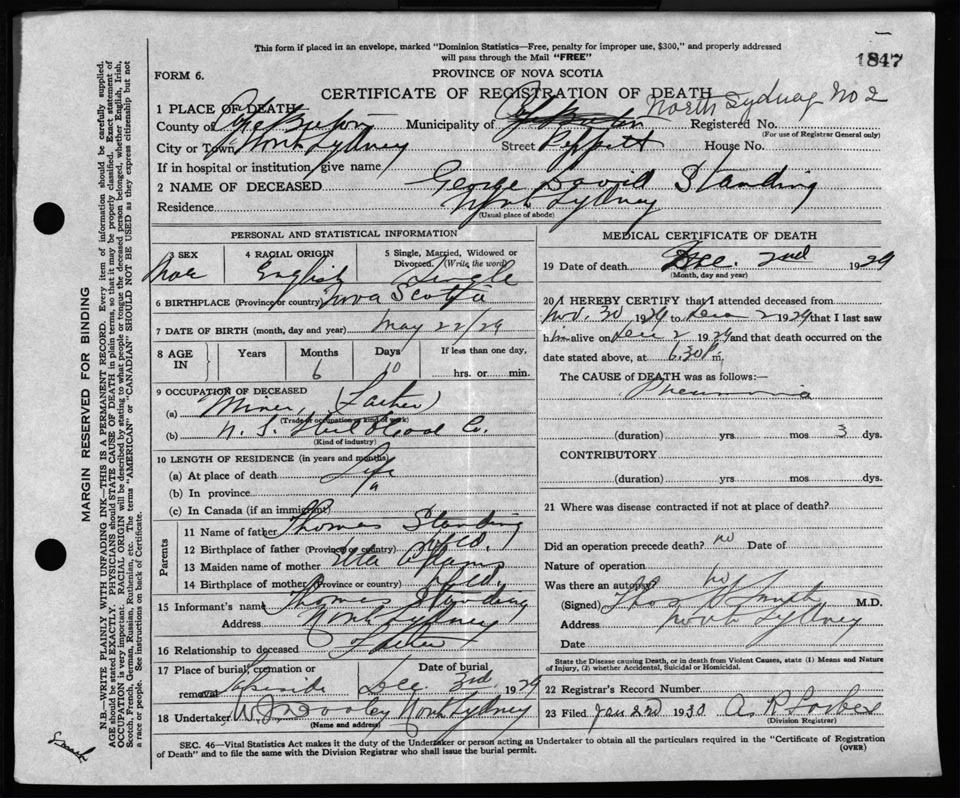 This form if placed in an envelope, marked "Dominion Statistics—Free, penalty for improper use, $300," and properly addressed
will pass through the Mail "FREE"
1847
FORM 6.
PROVINCE OF NOVA SCOTIA
CERTIFICATE OF REGISTRATION OF DEATH
North Sydney No 2
1 PLACE OF DEATH
County of Cape Breton Municipality of Cape Breton Registered No.
(For use of Registrar General only)
City or Town North Sydney Street Peppett House No.
If in hospital or institution, give name
2 NAME OF DECEASED George David Standing
Residence North Sydney
(Usual place of abode)
PERSONAL AND STATISTICAL INFORMATION
3 SEX Male
4 RACIAL ORIGIN English
5 Single, Married, Widowed or Divorced. (Write the word) Single
6 BIRTHPLACE (Province or country) Nova Scotia
7 DATE OF BIRTH (month, day and year) May 22/29
8 AGE IN Years Months 6 Days 10 If less than one day, hrs. or min.
9 OCCUPATION OF DECEASED
(a) Miner (Father)
(Trade or occupation or kind of work)
(b) N. S. Steel & Coal Co.
(Kind of industry)
10 LENGTH OF RESIDENCE (in years and months)
(a) At place of death Life
(b) In province
(c) In Canada (if an immigrant)
Parents
11 Name of father Thomas Standing
12 Birthplace of father (Province or country) Nfld.
13 Maiden name of mother Etta Adams
14 Birthplace of mother (Province or country) Nfld.
15 Informant's name Thomas Standing
Address North Sydney
16 Relationship to deceased Father
17 Place of burial, cremation or removal Lakeside
Date of burial Dec. 3rd. 1929
18 Undertaker North Sydney
(Name and address)
MEDICAL CERTIFICATE OF DEATH
19 Date of death Dec. 2nd 1929
(Month, day and year)
20 I HEREBY CERTIFY that I attended deceased from
Nov. 30 1929 to Dec 2 1929 that I last saw
him alive on Dec 2 1929 and that death occurred on the
date stated above, at 6.30 P. m.
The CAUSE of DEATH was as follows:—
Pneumonia
(duration) yrs mos 3 dys.
CONTRIBUTORY
(duration) yrs. mos dys.
21 Where was disease contracted if not at place of death?
Did an operation precede death? no Date of
Nature of operation
Was there an autopsy? no
(Signed) M.D.
Address North Sydney
Date
State the Disease causing Death, or in death from Violent Causes, state (1) Means and Nature
of Injury, (2) whether Accidental, Suicidal or Homicidal.
22 Registrar's Record Number
23 Filed Jan 2nd 1930 A. R. Forbes
(Division Registrar)
SEC. 46—Vital Statistics Act makes it the duty of the Undertaker or person acting as Undertaker to obtain all the particulars required in the "Certificate of Registration
of Death" and to file the same with the Division Registrar who shall issue the burial permit.
(OVER)
MARGIN RESERVED FOR BINDING
N.B.—WRITE PLAINLY WITH UNFADING INK—THIS IS A PERMANENT RECORD. Every item of information should be carefully supplied.
AGE should be stated EXACTLY. PHYSICIANS should STATE CAUSE OF DEATH in plain terms, so that it may be properly classified. Exact statement of
OCCUPATION is very important. RACIAL ORIGIN will be described by stating to what people or tongue the deceased person belonged, whether English, Irish,
Scotch, French, German, Russian, Ruthenian, etc. The terms "AMERICAN" or "CANADIAN" SHOULD NOT BE USED as they express citizenship but not
a race or people. See instructions on back of Certificate.